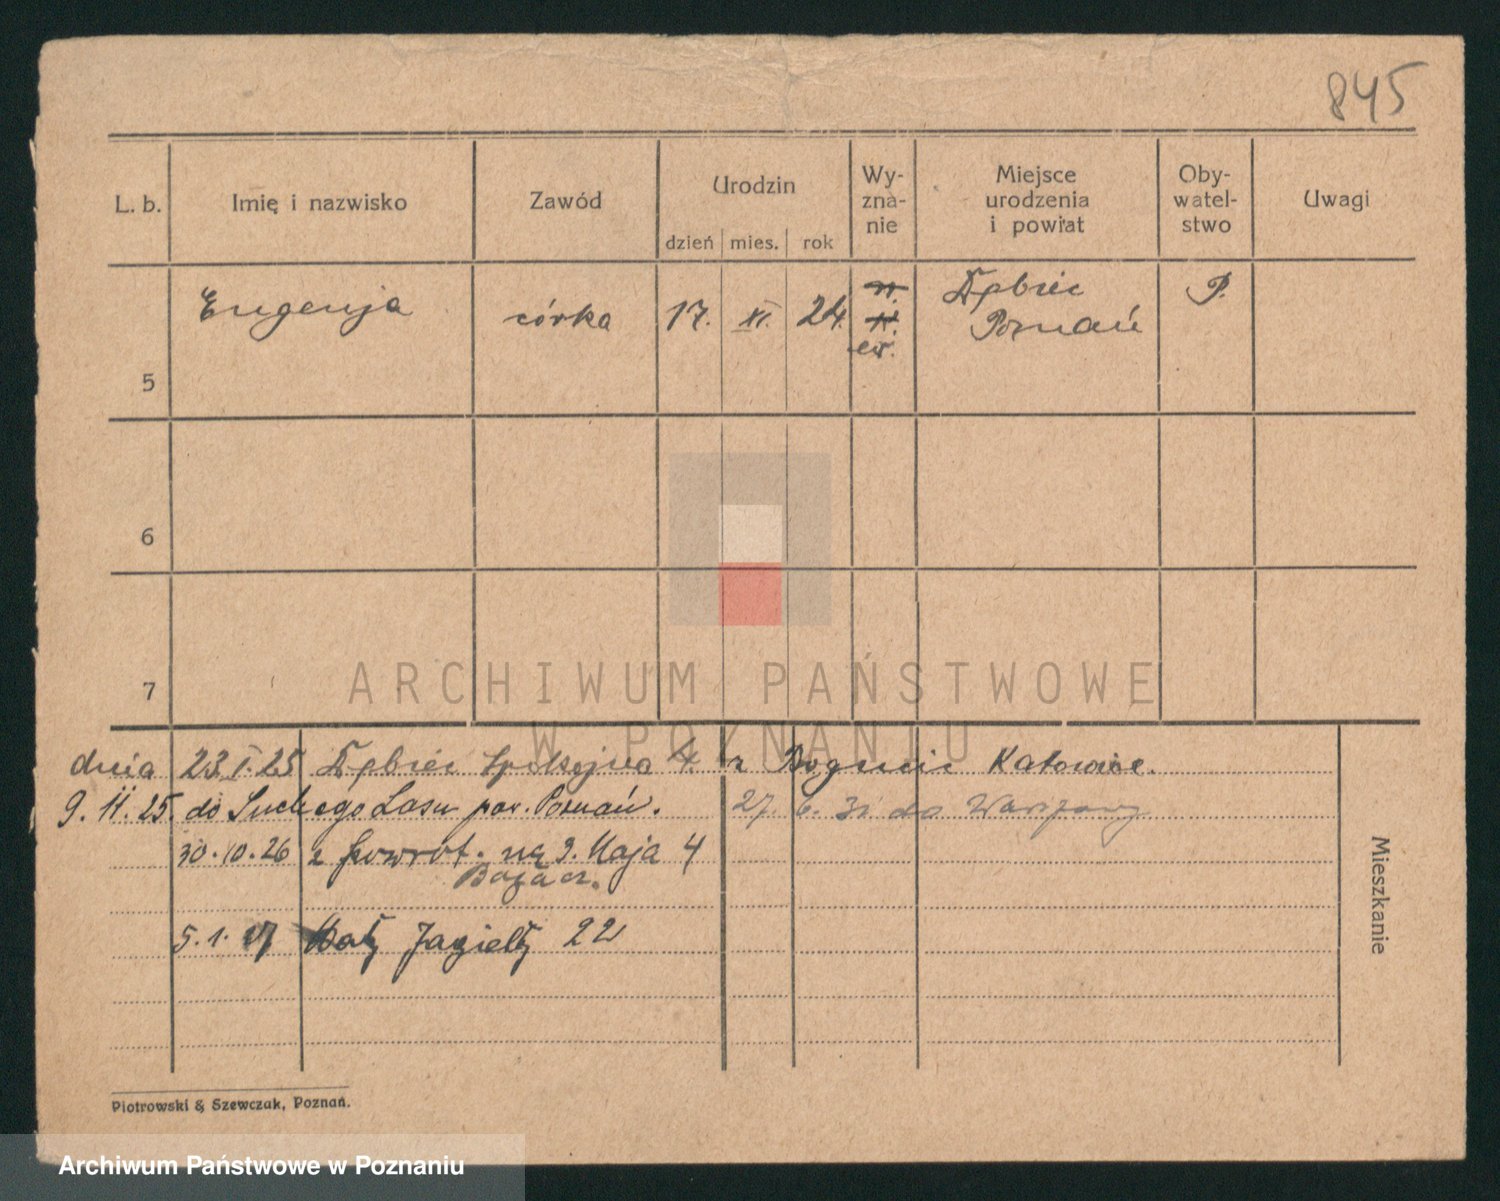 845
L. b. Imię i nazwisko Zawód Urodzin dzień mies. rok Wy-zna-nie Miejsce urodzenia i powiat Oby-watel-stwo Uwagi
5 Eugenja córka 17. XI. 24. ew. Dębiec Poznań P.
6
7
ARCHIWUM PAŃSTWOWE
W POZNANIU
dnia 23.I.25 Dębiec Spokojna 4. z Bogucic Katowice.
9. 11. 25. do Suchego Lasu pow. Poznań. 27. 6. 31 do Warszawy
30.10.26 z powrót. na 3. Maja 4
5. 1. Jagiełły 22
Mieszkanie
Piotrowski & Szewczak, Poznań.
Archiwum Państwowe w Poznaniu